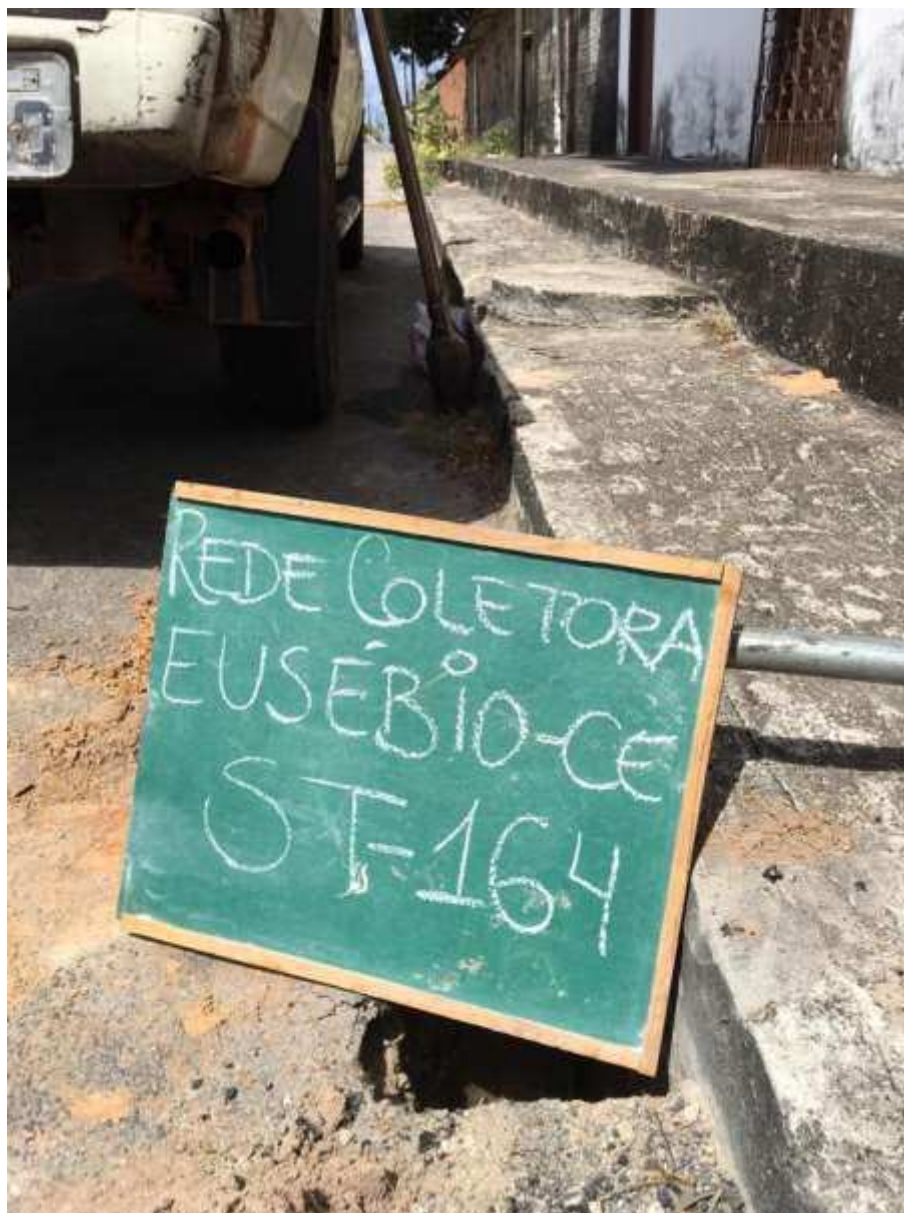 REDE COLETORA
EUSÉBIO-CE
ST-164